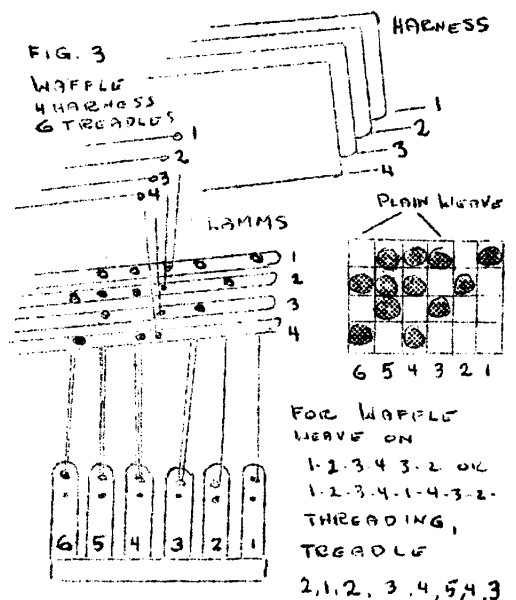 FIG. 3
WAFFLE
4 HARNESS
6 TREADLES
HARNESS
1
2
3
4
1
2
3
4
LAMMS
1
2
3
4
PLAIN WEAVE
6 5 4 3 2 1
6 5 4 3 2 1
FOR WAFFLE
WEAVE ON
1-2-3-4 3-2 OR
1-2-3-4-1-4-3-2-
THREADING,
TREADLE
2,1,2, 3,4,5,4,3